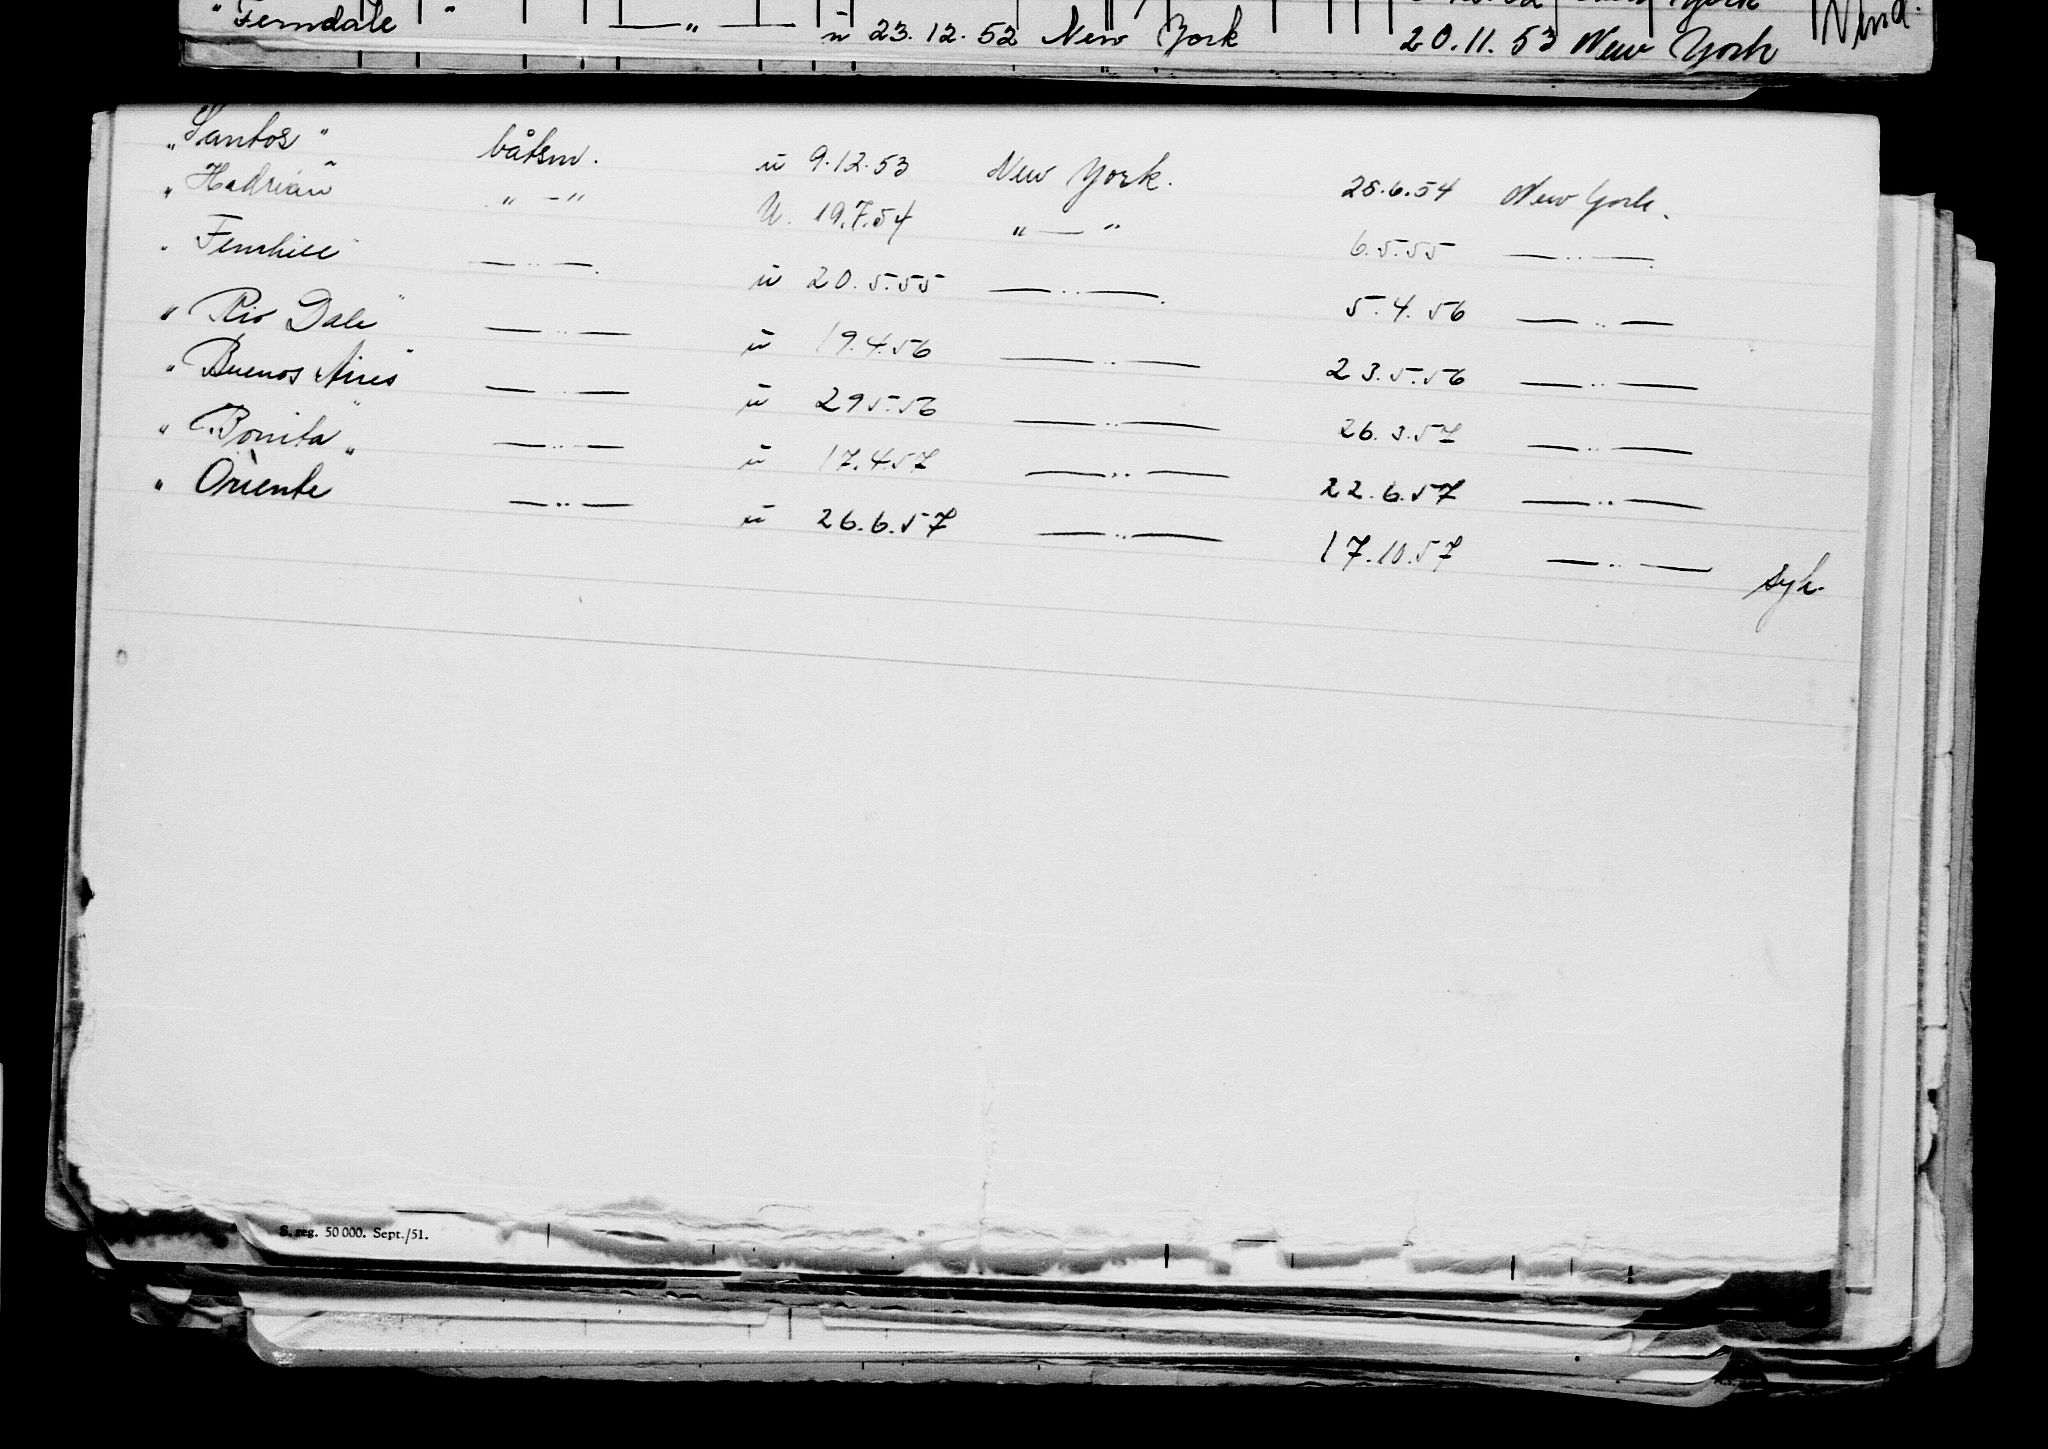 "Ferndale" —„— u 23.12.52 New York 20.11.53 New York
„Santos" båtsm. u 9.12.53 New York. 25.6.54 New York.
„Hadrian" „-" U. 19.7.54 „—" 6.5.55 —..—
„Fernhill" —..— u 20.5.55 —..—. 5.4.56 —..—
„Rio Dale" —..— u 19.4.56 —..— 23.5.56 —..—
„Buenos Aires" —..— u 295.56 —..— 26.3.57 —..—
„Bonita" —..— u 17.4.57 —..— 22.6.57 —..—
„Oriente" —..— u 26.6.57 —..— 17.10.57 —..— syk.
S. reg. 50 000. Sept./51.